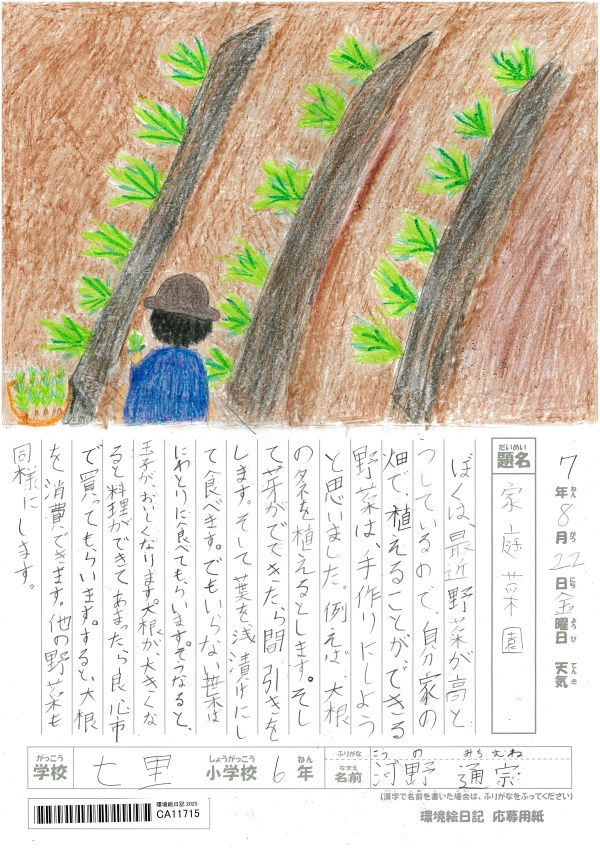 7年8月22日金曜日 天気
ねん がつ にち ようび てんき
だいめい
題名 家庭菜園
ぼくは、最近野菜が高と
うしているので、自分家の
畑で、植えることができる
野菜は、手作りにしよう
と思いました。例えば、大根
のタネを植えるとします。そし
て芽がでてきたら間引きを
します。そして葉を浅漬けにし
て食べます。でもいらない葉は
にわとりに食べてもらいます。そうなると、
玉子が、おいしくなります。大根が大きくな
ると料理ができて、あまったら良心市
で買ってもらいます。すると大根
を消費できます。他の野菜も
同様にします。
がっこう しょうがっこう ねん
学校 七里 小学校 6年
ふりがな こうの みちむね
なまえ
名前 河野 通宗
(漢字で名前を書いた場合は、ふりがなをふってください)
環境絵日記 2025
CA11715
環境絵日記 応募用紙